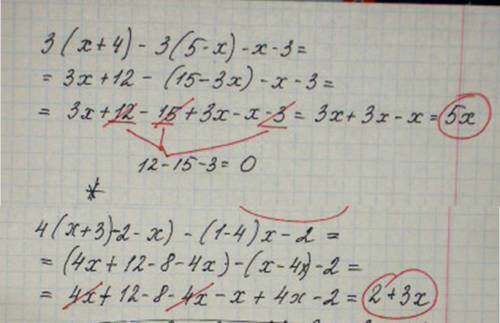 3(x+4)-3(5-x)-x-3=
=3x+12-(15-3x)-x-3=
=3x+12-15+3x-x-3=3x+3x-x=5x
12-15-3=0
*
4(x+3)-2-x)-(1-4)x-2=
=(4x+12-8-4x)-(x-4x)-2=
=4x+12-8-4x-x+4x-2=2+3x